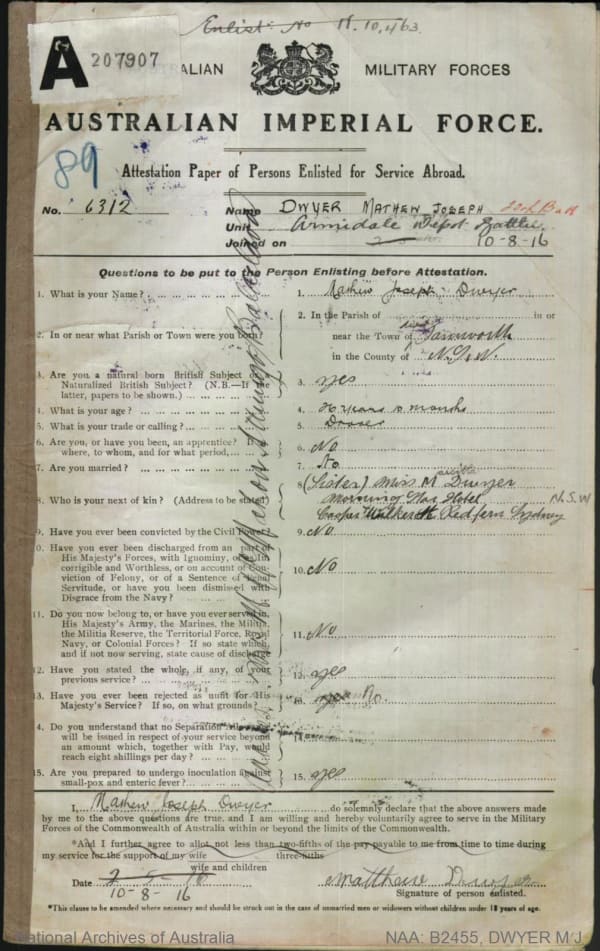 Enlist. No 11.10,463
A 207907
AUSTRALIAN MILITARY FORCES
AUSTRALIAN IMPERIAL FORCE.
89
Attestation Paper of Persons Enlisted for Service Abroad.
No. 6312 Name DWYER MATHEW JOSEPH
Unit Armidale Depot Battln
Joined on 10-8-16
Questions to be put to the Person Enlisting before Attestation.
1. What is your Name? 1. Mathew Joseph Dwyer
2. In or near what Parish or Town were you born? 2. In the Parish of in or
near the Town of Tamworth
in the County of N.S.W.
3. Are you a natural born British Subject or a
Naturalized British Subject? (N.B.—If the
latter, papers to be shown.) 3. yes
4. What is your age? 4. years months
5. What is your trade or calling? 5. Drover
6. Are you, or have you been, an apprentice? If so,
where, to whom, and for what period, 6. No
7. Are you married? 7. No
8. Who is your next of kin? (Address to be stated) 8. (Sister) Miss M Dwyer
Morning Star Hotel N.S.W
Redfern Sydney
9. Have you ever been convicted by the Civil Power? 9. No
10. Have you ever been discharged from any part of
His Majesty's Forces, with Ignominy, or as
corrigible and Worthless, or on account of Con-
viction of Felony, or of a Sentence of Penal
Servitude, or have you been dismissed with
Disgrace from the Navy? 10. No
11. Do you now belong to, or have you ever served in,
His Majesty's Army, the Marines, the Militia,
the Militia Reserve, the Territorial Force, Royal
Navy, or Colonial Forces? If so state which,
and if not now serving, state cause of discharge 11. No
12. Have you stated the whole, if any, of your
previous service? 12. yes
13. Have you ever been rejected as unfit for His
Majesty's Service? If so, on what grounds? 13. yes No.
14. Do you understand that no Separation
will be issued in respect of your service beyond
an amount which, together with Pay, would
reach eight shillings per day? 14.
15. Are you prepared to undergo inoculation against
small-pox and enteric fever? 15. yes
I, Mathew Joseph Dwyer do solemnly declare that the above answers made
by me to the above questions are true, and I am willing and hereby voluntarily agree to serve in the Military
Forces of the Commonwealth of Australia within or beyond the limits of the Commonwealth.
*And I further agree to allot not less than two-fifths of the pay payable to me from time to time during
my service for the support of my wife three-fifths
wife and children
Date 2-8-16 Matthew Dwyer
10-8-16 Signature of person enlisted.
*This clause to be amended where necessary and should be struck out in the case of unmarried men or widowers without children under 18 years of age.
National Archives of Australia NAA: B2455, DWYER M J